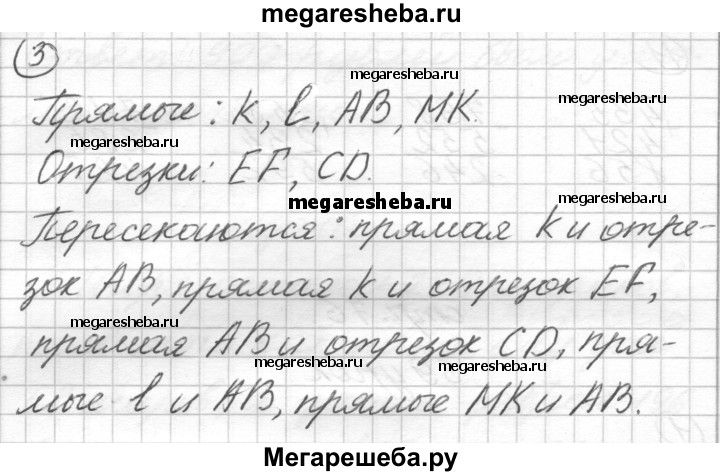 megaresheba.ru
3
megaresheba.ru
Прямые: k, l, AB, MK.
megaresheba.ru
megaresheba.ru
Отрезки: EF, CD.
megaresheba.ru
megaresheba.ru
Пересекаются: прямая k и отре-
зок AB, прямая k и отрезок EF,
megaresheba.ru
прямая AB и отрезок CD, пря-
megaresheba.ru
megaresheba.ru
мые l и AB, прямые MK и AB.
Мегарешеба.ру